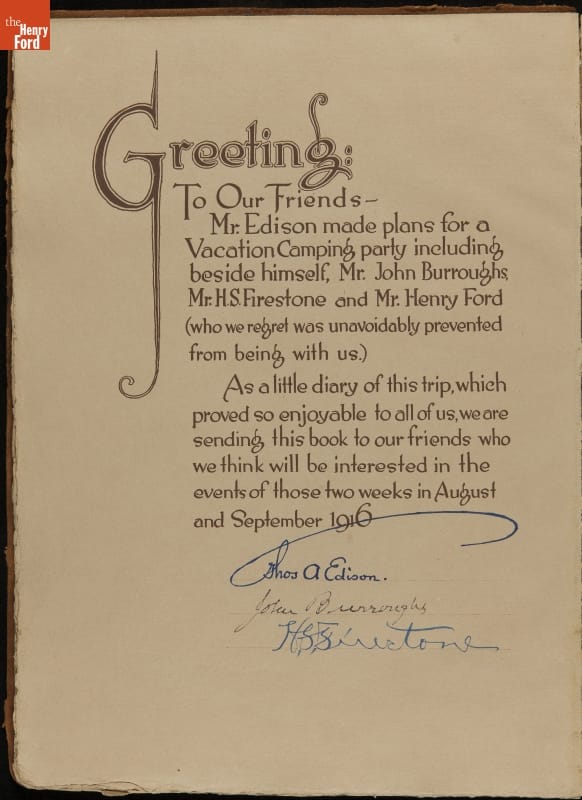 the
Henry
Ford
Greeting:
To Our Friends—
Mr. Edison made plans for a
Vacation Camping party including
beside himself, Mr. John Burroughs,
Mr. H.S. Firestone and Mr. Henry Ford
(who we regret was unavoidably prevented
from being with us.)
As a little diary of this trip, which
proved so enjoyable to all of us, we are
sending this book to our friends who
we think will be interested in the
events of those two weeks in August
and September 1916
Thos A Edison.
John Burroughs
H.S. Firestone